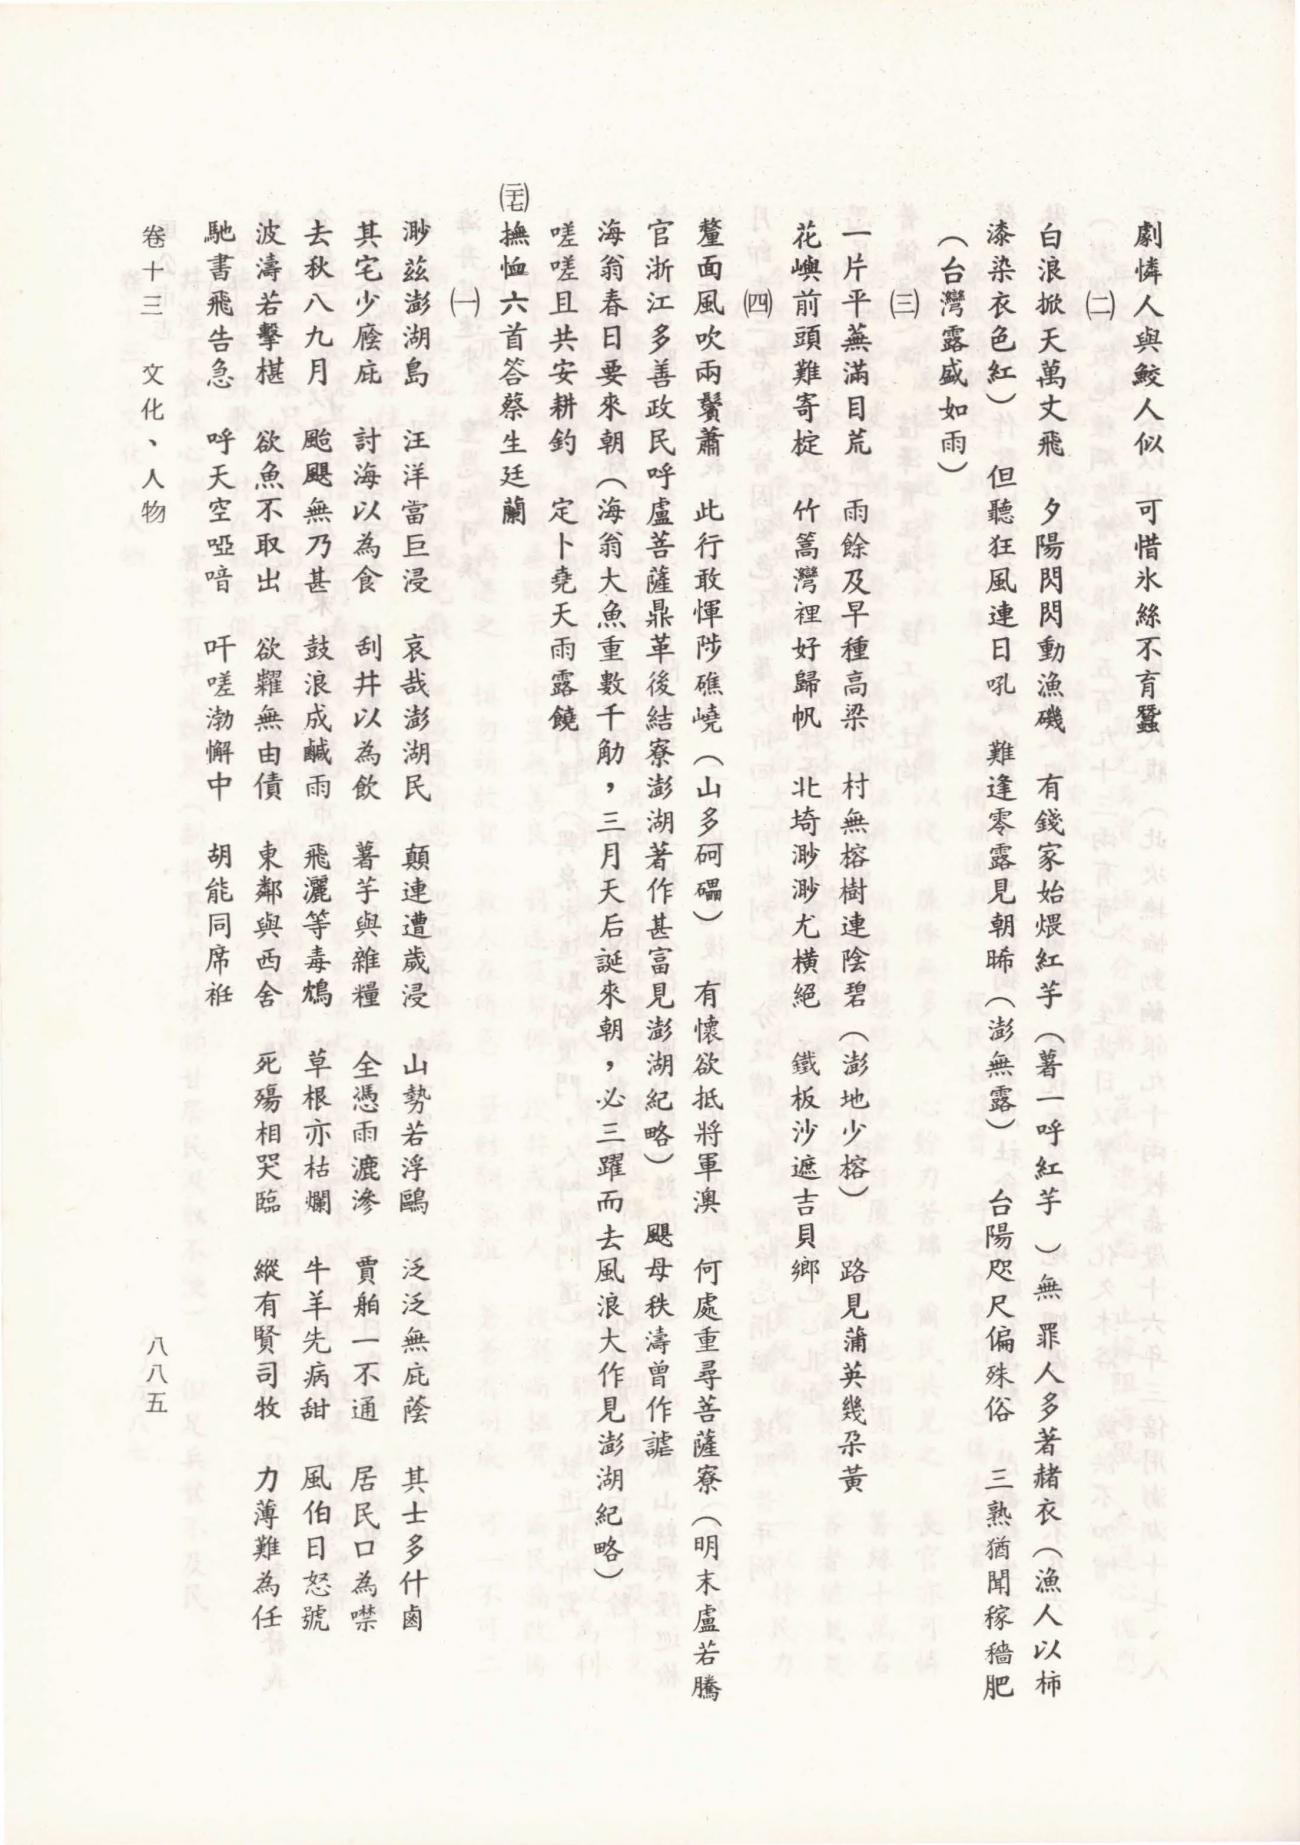 劇憐人與鮫人似　可惜氷絲不育蠶
㈡
白浪掀天萬丈飛　夕陽閃閃動漁磯　有錢家始煨紅芋（薯一呼紅芋）無　罪人多著赭衣（漁人以柿
漆染衣色紅）但聽狂風連日吼　難逢零露見朝晞（澎無露）　台陽咫尺偏殊俗　三熟猶聞稼穡肥
（台灣露盛如雨）
㈢
一片平蕪滿目荒　雨餘及早種高梁　村無榕樹連陰碧（澎地少榕）　路見蒲英幾朶黃
花嶼前頭難寄椗　竹篙灣裡好歸帆　北埼渺渺尤橫絕　鐵板沙遮吉貝鄉
㈣
釐面風吹兩鬢蕭　此行敢憚陟礁嶢（山多砢礧）　有懷欲抵將軍澳　何處重尋菩薩寮（明末盧若騰
官浙江多善政民呼盧菩薩鼎革後結寮澎湖著作甚富見澎湖紀略）　颶母秩濤曾作謔
海翁春日要來朝（海翁大魚重數千觔，三月天后誕來朝，必三躍而去風浪大作見澎湖紀略）
嗟嗟且共安耕釣　定卜堯天雨露饒
(三七)撫恤六首答蔡生廷蘭
㈠
渺茲澎湖島　汪洋當巨浸　哀哉澎湖民　顛連遭歲浸　山勢若浮鷗　泛泛無庇蔭　其士多什鹵
其宅少廕庇　討海以為食　刮井以為飲　薯芋與雜糧　全憑雨漉滲　賈舶一不通　居民口為噤
去秋八九月　颱颶無乃甚　鼓浪成鹹雨　飛灑等毒鴆　草根亦枯爛　牛羊先病甜　風伯日怒號
波濤若擊椹　欲魚不取出　欲糶無由債　東鄰與西舍　死殤相哭臨　縱有賢司牧　力薄難為任
馳書飛告急　呼天空啞喑　吁嗟渤懈中　胡能同席袵
卷十三　文化、人物
八八五